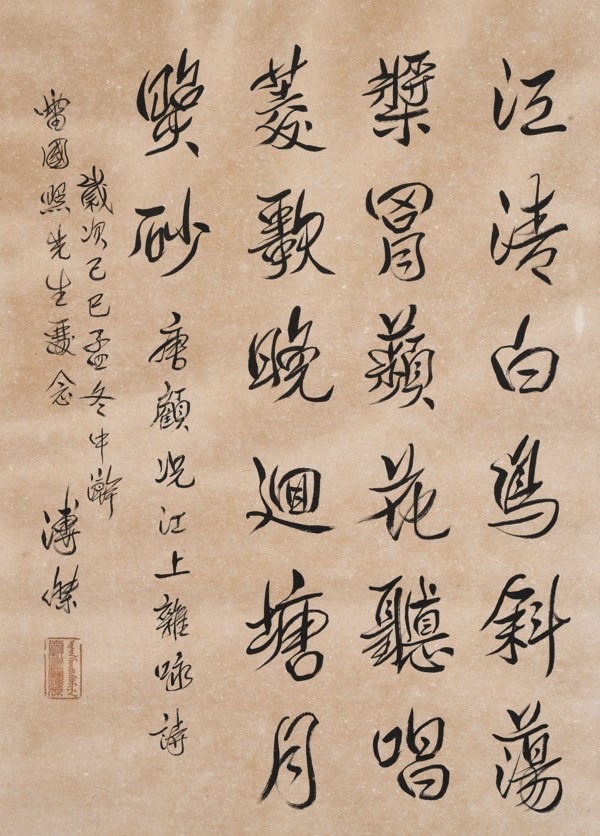 江清白鳥斜蕩
槳罥蘋花聽唱
菱歌晚迴塘月
照砂 唐顧況江上雜咏詩
歲次己巳孟冬中澣
國照先生愛念
溥傑